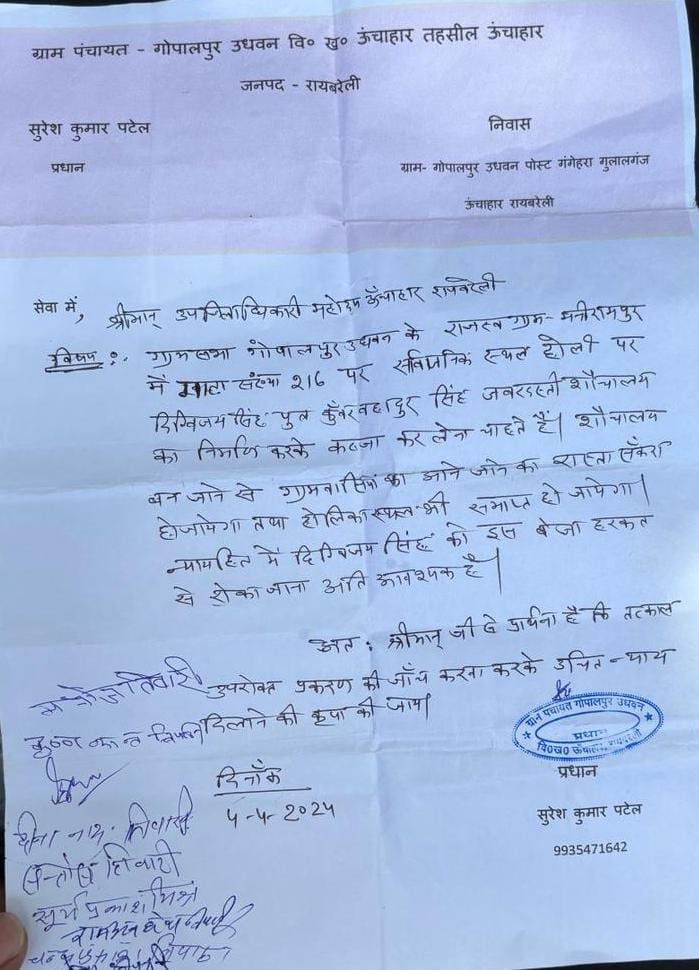 ग्राम पंचायत - गोपालपुर उधवन वि० ख० ऊंचाहार तहसील ऊंचाहार
जनपद - रायबरेली
सुरेश कुमार पटेल
निवास
प्रधान
ग्राम- गोपालपुर उधवन पोस्ट गंगेहरा गुलालगंज
ऊंचाहार रायबरेली
सेवा में, श्रीमान् उपजिलाधिकारी महोदय ऊँचाहार रायबरेली
विषय :- ग्रामसभा गोपालपुर उधवन के राजस्व ग्राम- मनीरामपुर
में संख्या 216 पर सार्वजनिक स्थल होली पर
दिग्विजय सिंह पुत्र कुँवर बहादुर सिंह जबरदस्ती शौचालय
का निर्माण करके कब्जा कर लेना चाहते हैं। शौचालय
बन जाने से ग्रामवासियों का आने जाने का रास्ता सँकरा
होजायेगा तथा होलिका स्थल भी समाप्त हो जायेगा।
न्यायहित में दिग्विजय सिंह को इस बेजा हरकत
से रोका जाना अति आवश्यक है।
अत: श्रीमान् जी से प्रार्थना है कि तत्काल
उपरोक्त प्रकरण की जाँच करवा करके उचित न्याय
दिलाने की कृपा की जाय।
मनोज तिवारी
कृष्ण कान्त
ग्राम पंचायत गोपालपुर उधवन
प्रधान
वि०ख० ऊँचाहार, रायबरेली
प्रधान
दिनाँक
4-4-2024
सुरेश कुमार पटेल
9935471642
दीना नाथ तिवारी
सन्तोष तिवारी
सूर्य प्रकाश मिश्रा